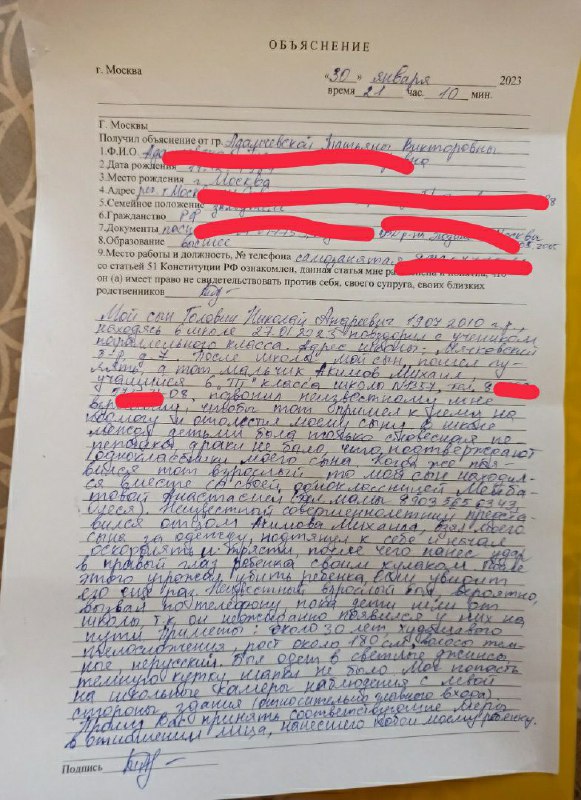 ОБЪЯСНЕНИЕ
г. Москва «30» января 2023
время 21 час. 10 мин.
Г. Москвы
Получил объяснение от гр. Викторовны
1.Ф.И.О.
2.Дата рождения
3.Место рождения г. Москва
4.Адрес рег. г. Москва
5.Семейное положение
6.Гражданство РФ
7.Документы
8.Образование высшее
9.Место работы и должность, № телефона самозанятая
со статьей 51 Конституции РФ ознакомлен, данная статья мне и понятна, что
он (а) имеет право не свидетельствовать против себя, своего супруга, своих близких
родственников
Мой сын Николай Андреевич 19.07.2010 г.р.,
находясь в школе 27.01.2023 повздорил с учеником
параллельного класса. Адрес школы:
д. 7. После школы мой сын пошел гу-
лять, а тот мальчик Акимов Михаил
учащийся 6 класса школы №1357, тел. 8
08, позвонил неизвестному мне
взрослому, чтобы тот пришел к нему на
помощь и отомстил моему сыну. В школе
между детьми была только словесная пе-
репалка, драки не было, что подтверждают
одноклассники моего сына. Когда же поя-
вился тот взрослый то мой сын находил-
ся вместе со своей одноклассницей
Анастасией (тел. мамы
Олеся). Неизвестный совершеннолетний предста-
вился отцом Акимова Михаила, взял моего
сына за одежду, подтянул к себе и начал
оскорблять и трясти, после чего нанес удар
в правый глаз ребенка своим кулаком. После
этого угрожал убить ребенка, если увидит
его еще раз. Неизвестный взрослый был, вероятно,
вызван по телефону, пока дети шли от
школы, т.к. он неожиданно появился у них на
пути. Приметы: около 30 лет, худощавого
телосложения, рост около 180 см, волосы тем-
ные нерусский. Был одет в светлые джинсы
темную куртку, шапки не было. Мог попасть
на школьные камеры наблюдения с левой
стороны здания (относительно главного входа).
Прошу Вас принять соответствующие меры
в отношении лица, нанесшего побои моему ребенку.
Подпись